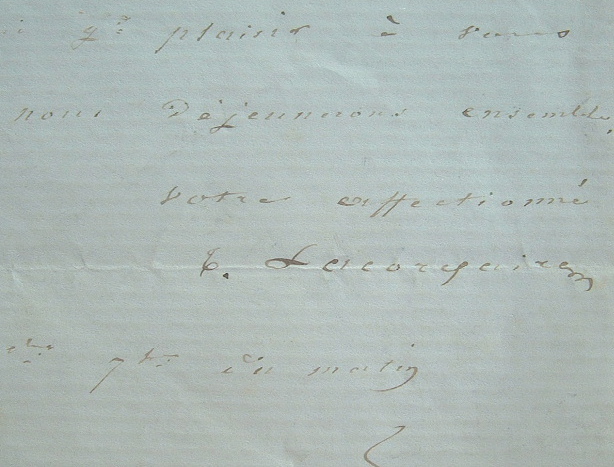 gd plaisir à vous
nous déjeunerons ensemble.
votre affectionné
T. Lacordaire
du matin